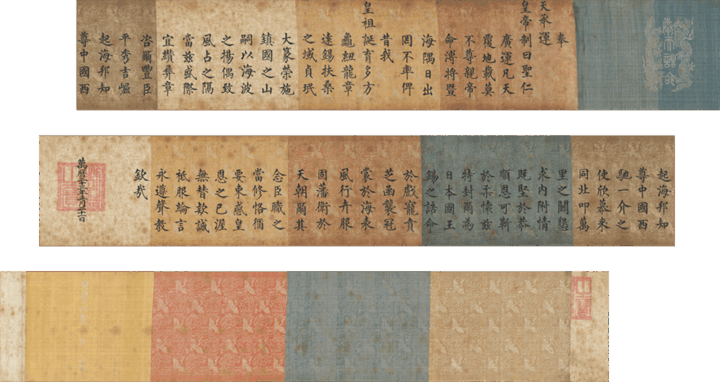 奉
天承運
皇帝制曰聖仁
廣運凡天
覆地載莫
不尊親帝
命溥將曁
海隅日出
罔不率俾
昔我
皇祖誕育多方
龜紐龍章
遠錫扶桑
之域貞珉
大篆榮施
鎮國之山
嗣以海波
之揚偶致
風占之隔
當茲盛際
宜纘彝章
咨爾豐臣
平秀吉崛
起海邦知
尊中國西
起海邦知
尊中國西
馳一介之
使欣慕來
同北叩萬
里之關懇
求內附情
既堅於恭
順恩可靳
於柔懷茲
特封爾爲
日本國王
錫之誥命
於戲寵賁
芝函襲冠
裳於海表
風行卉服
固藩衛於
天朝爾其
念臣職之
當修恪循
要束感皇
恩之已渥
無替款誠
祗服綸言
永遵聲教
欽哉